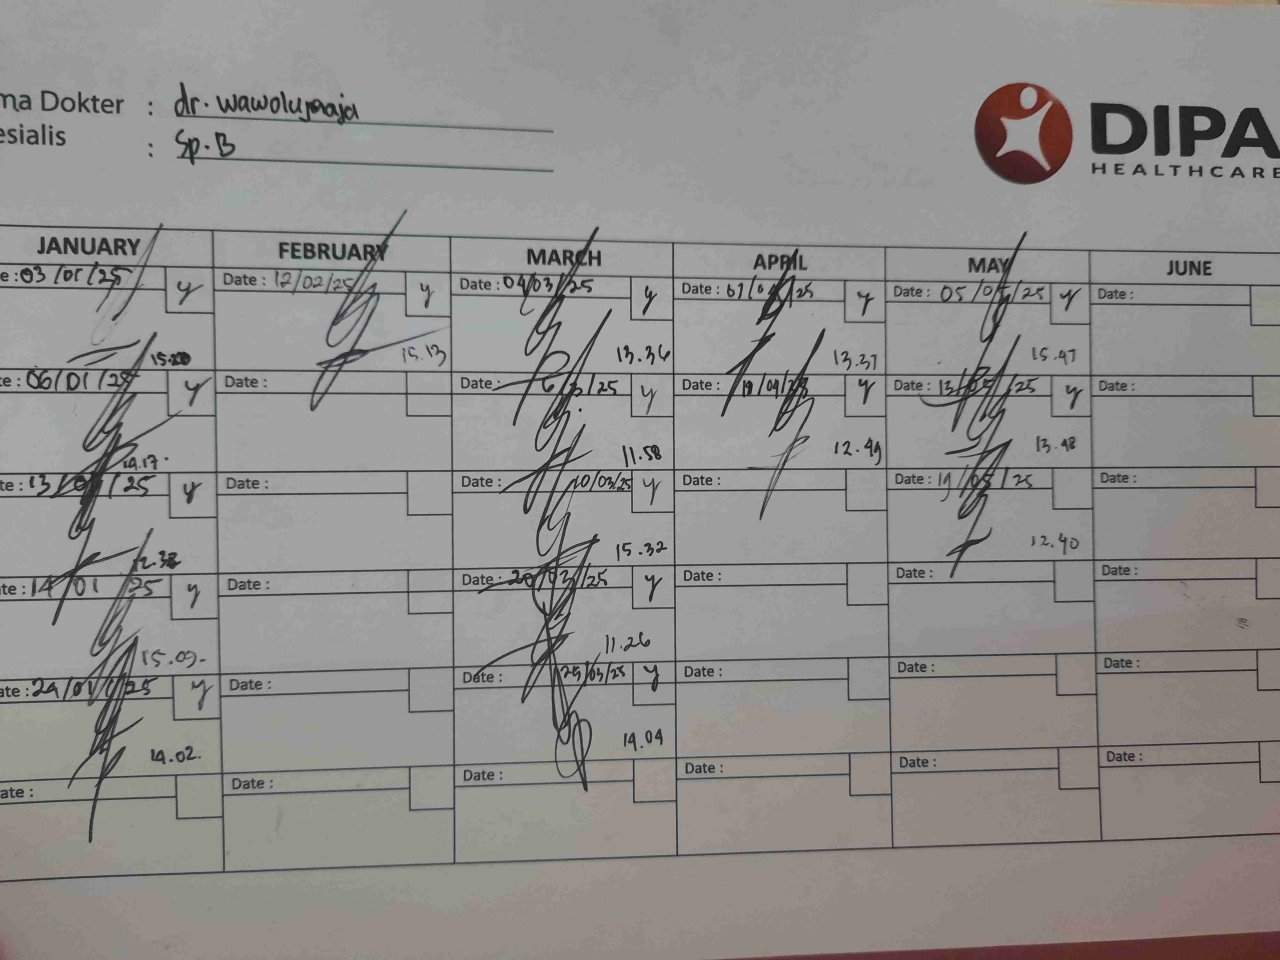 ma Dokter : dr. wawolumaja
esialis : Sp.B
DIPA
HEALTHCARE
JANUARY FEBRUARY MARCH APRIL MAY JUNE
e : 03/01/25 y Date : 12/02/25 y Date : 04/03/25 y Date : 01/04/25 y Date : 05/05/25 y Date :
15.20 15.13 13.36 13.37 15.47
te : 06/01/25 y Date : Date : 6/3/25 y 19/04/25 y Date : 13/05/25 y Date :
14.17. 11.58 12.49 13.48
te : 13/01/25 y Date : Date : 10/03/25 y Date : Date : 19/05/25 Date :
12.38 15.32 12.40
te : 14/01/25 y Date : Date : 20/03/25 y Date : Date : Date :
15.09- 11.26
ate : 24/01/25 y Date : Date : 25/03/25 y Date : Date : Date :
14.02. 14.04
ate : Date : Date : Date : Date : Date :